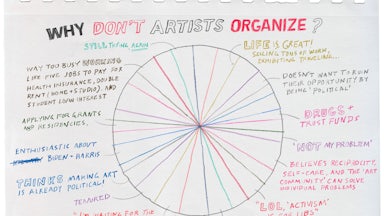 WHY DON'T ARTISTS ORGANIZE?
STILL TRYING AGAIN
LIFE IS GREAT!
SELLING TONS OF WORK,
EXHIBITING, TRAVELING...
WAY TOO BUSY WORKING
LIKE FIVE JOBS TO PAY FOR
HEALTH INSURANCE, DOUBLE
RENT (HOME + STUDIO), AND
STUDENT LOAN INTEREST
DOESN'T WANT TO RUIN
THEIR OPPORTUNITY BY
BEING 'POLITICAL'
APPLYING FOR GRANTS
AND RESIDENCIES.
DRUGS +
TRUST FUNDS
ENTHUSIASTIC ABOUT
BIDEN + HARRIS
'NOT MY PROBLEM'
THINKS MAKING ART
IS ALREADY POLITICAL!
BELIEVES RECIPROCITY,
SELF-CARE, AND THE 'ART
COMMUNITY' CAN SOLVE
INDIVIDUAL PROBLEMS
TENURED
'LOL, 'ACTIVISM'
"I'M WAITING FOR THE
LIBS